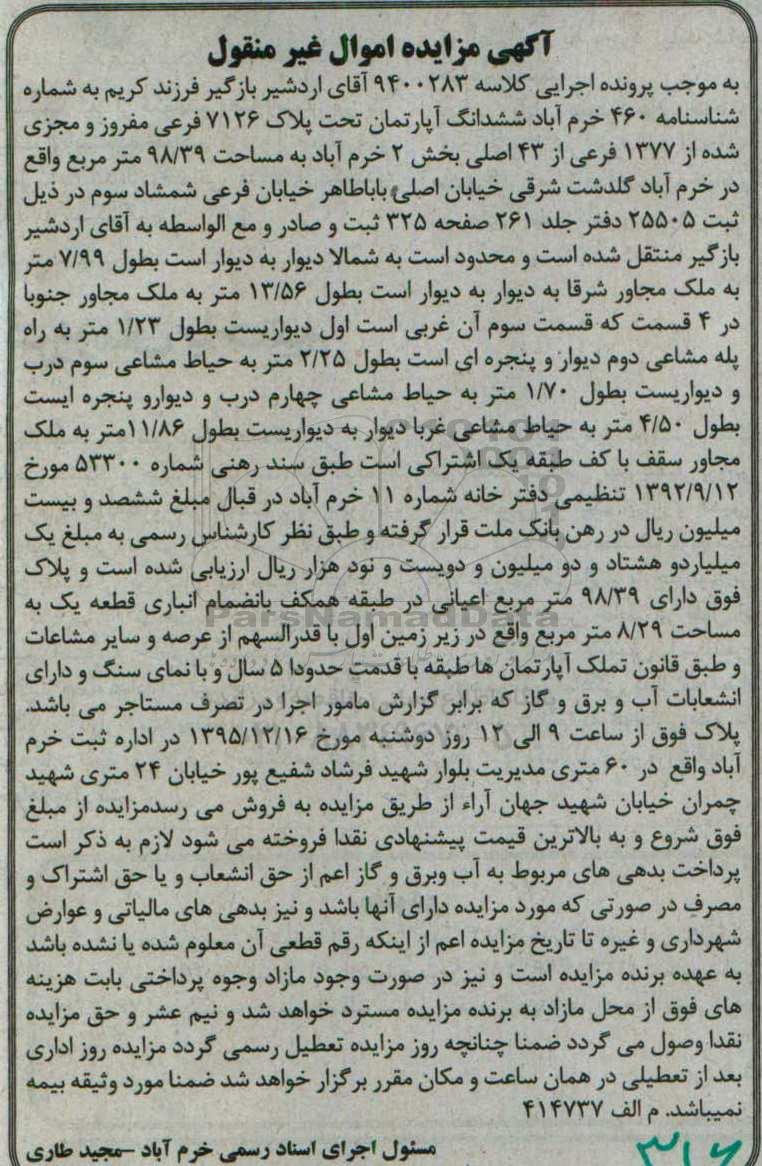 آگهی مزایده اموال غیر منقول
به موجب پرونده اجرایی کلاسه ۹۴۰۰۲۸۳ آقای اردشیر بازگیر فرزند کریم به شماره
شناسنامه ۴۶۰ خرم آباد ششدانگ آپارتمان تحت پلاک ۷۱۲۶ فرعی مفروز و مجزی
شده از ۱۳۷۷ فرعی از ۴۳ اصلی بخش ۲ خرم آباد به مساحت ۹۸/۳۹ متر مربع واقع
در خرم آباد گلدشت شرقی خیابان اصلی باباطاهر خیابان فرعی شمشاد سوم در ذیل
ثبت ۲۵۵۰۵ دفتر جلد ۲۶۱ صفحه ۳۲۵ ثبت و صادر و مع الواسطه به آقای اردشیر
بازگیر منتقل شده است و محدود است به شمالا دیوار به دیوار است بطول ۷/۹۹ متر
به ملک مجاور شرقا به دیوار به دیوار است بطول ۱۳/۵۶ متر به ملک مجاور جنوبا
در ۴ قسمت که قسمت سوم آن غربی است اول دیواریست بطول ۱/۲۳ متر به راه
پله مشاعی دوم دیوار و پنجره ای است بطول ۲/۲۵ متر به حیاط مشاعی سوم درب
و دیواریست بطول ۱/۷۰ متر به حیاط مشاعی چهارم درب و دیوارو پنجره ایست
بطول ۴/۵۰ متر به حیاط مشاعی غربا دیوار به دیواریست بطول ۱۱/۸۶متر به ملک
مجاور سقف با کف طبقه یک اشتراکی است طبق سند رهنی شماره ۵۳۳۰۰ مورخ
۱۳۹۲/۹/۱۲ تنظیمی دفتر خانه شماره ۱۱ خرم آباد در قبال مبلغ ششصد و بیست
میلیون ریال در رهن بانک ملت قرار گرفته و طبق نظر کارشناس رسمی به مبلغ یک
میلیاردو هشتاد و دو میلیون و دویست و نود هزار ریال ارزیابی شده است و پلاک
فوق دارای ۹۸/۳۹ متر مربع اعیانی در طبقه همکف بانضمام انباری قطعه یک به
مساحت ۸/۲۹ متر مربع واقع در زیر زمین اول با قدرالسهم از عرصه و سایر مشاعات
و طبق قانون تملک آپارتمان ها طبقه با قدمت حدودا ۵ سال و با نمای سنگ و دارای
انشعابات آب و برق و گاز که برابر گزارش مامور اجرا در تصرف مستاجر می باشد.
پلاک فوق از ساعت ۹ الی ۱۲ روز دوشنبه مورخ ۱۳۹۵/۱۲/۱۶ در اداره ثبت خرم
آباد واقع در ۶۰ متری مدیریت بلوار شهید فرشاد شفیع پور خیابان ۲۴ متری شهید
چمران خیابان شهید جهان آراء از طریق مزایده به فروش می رسدمزایده از مبلغ
فوق شروع و به بالاترین قیمت پیشنهادی نقدا فروخته می شود لازم به ذکر است
پرداخت بدهی های مربوط به آب وبرق و گاز اعم از حق انشعاب و یا حق اشتراک و
مصرف در صورتی که مورد مزایده دارای آنها باشد و نیز بدهی های مالیاتی و عوارض
شهرداری و غیره تا تاریخ مزایده اعم از اینکه رقم قطعی آن معلوم شده یا نشده باشد
به عهده برنده مزایده است و نیز در صورت وجود مازاد وجوه پرداختی بابت هزینه
های فوق از محل مازاد به برنده مزایده مسترد خواهد شد و نیم عشر و حق مزایده
نقدا وصول می گردد ضمنا چنانچه روز مزایده تعطیل رسمی گردد مزایده روز اداری
بعد از تعطیلی در همان ساعت و مکان مقرر برگزار خواهد شد ضمنا مورد وثیقه بیمه
نمیباشد. م الف ۴۱۴۷۳۷
مسئول اجرای اسناد رسمی خرم آباد -مجید طاری
ParsNamadData